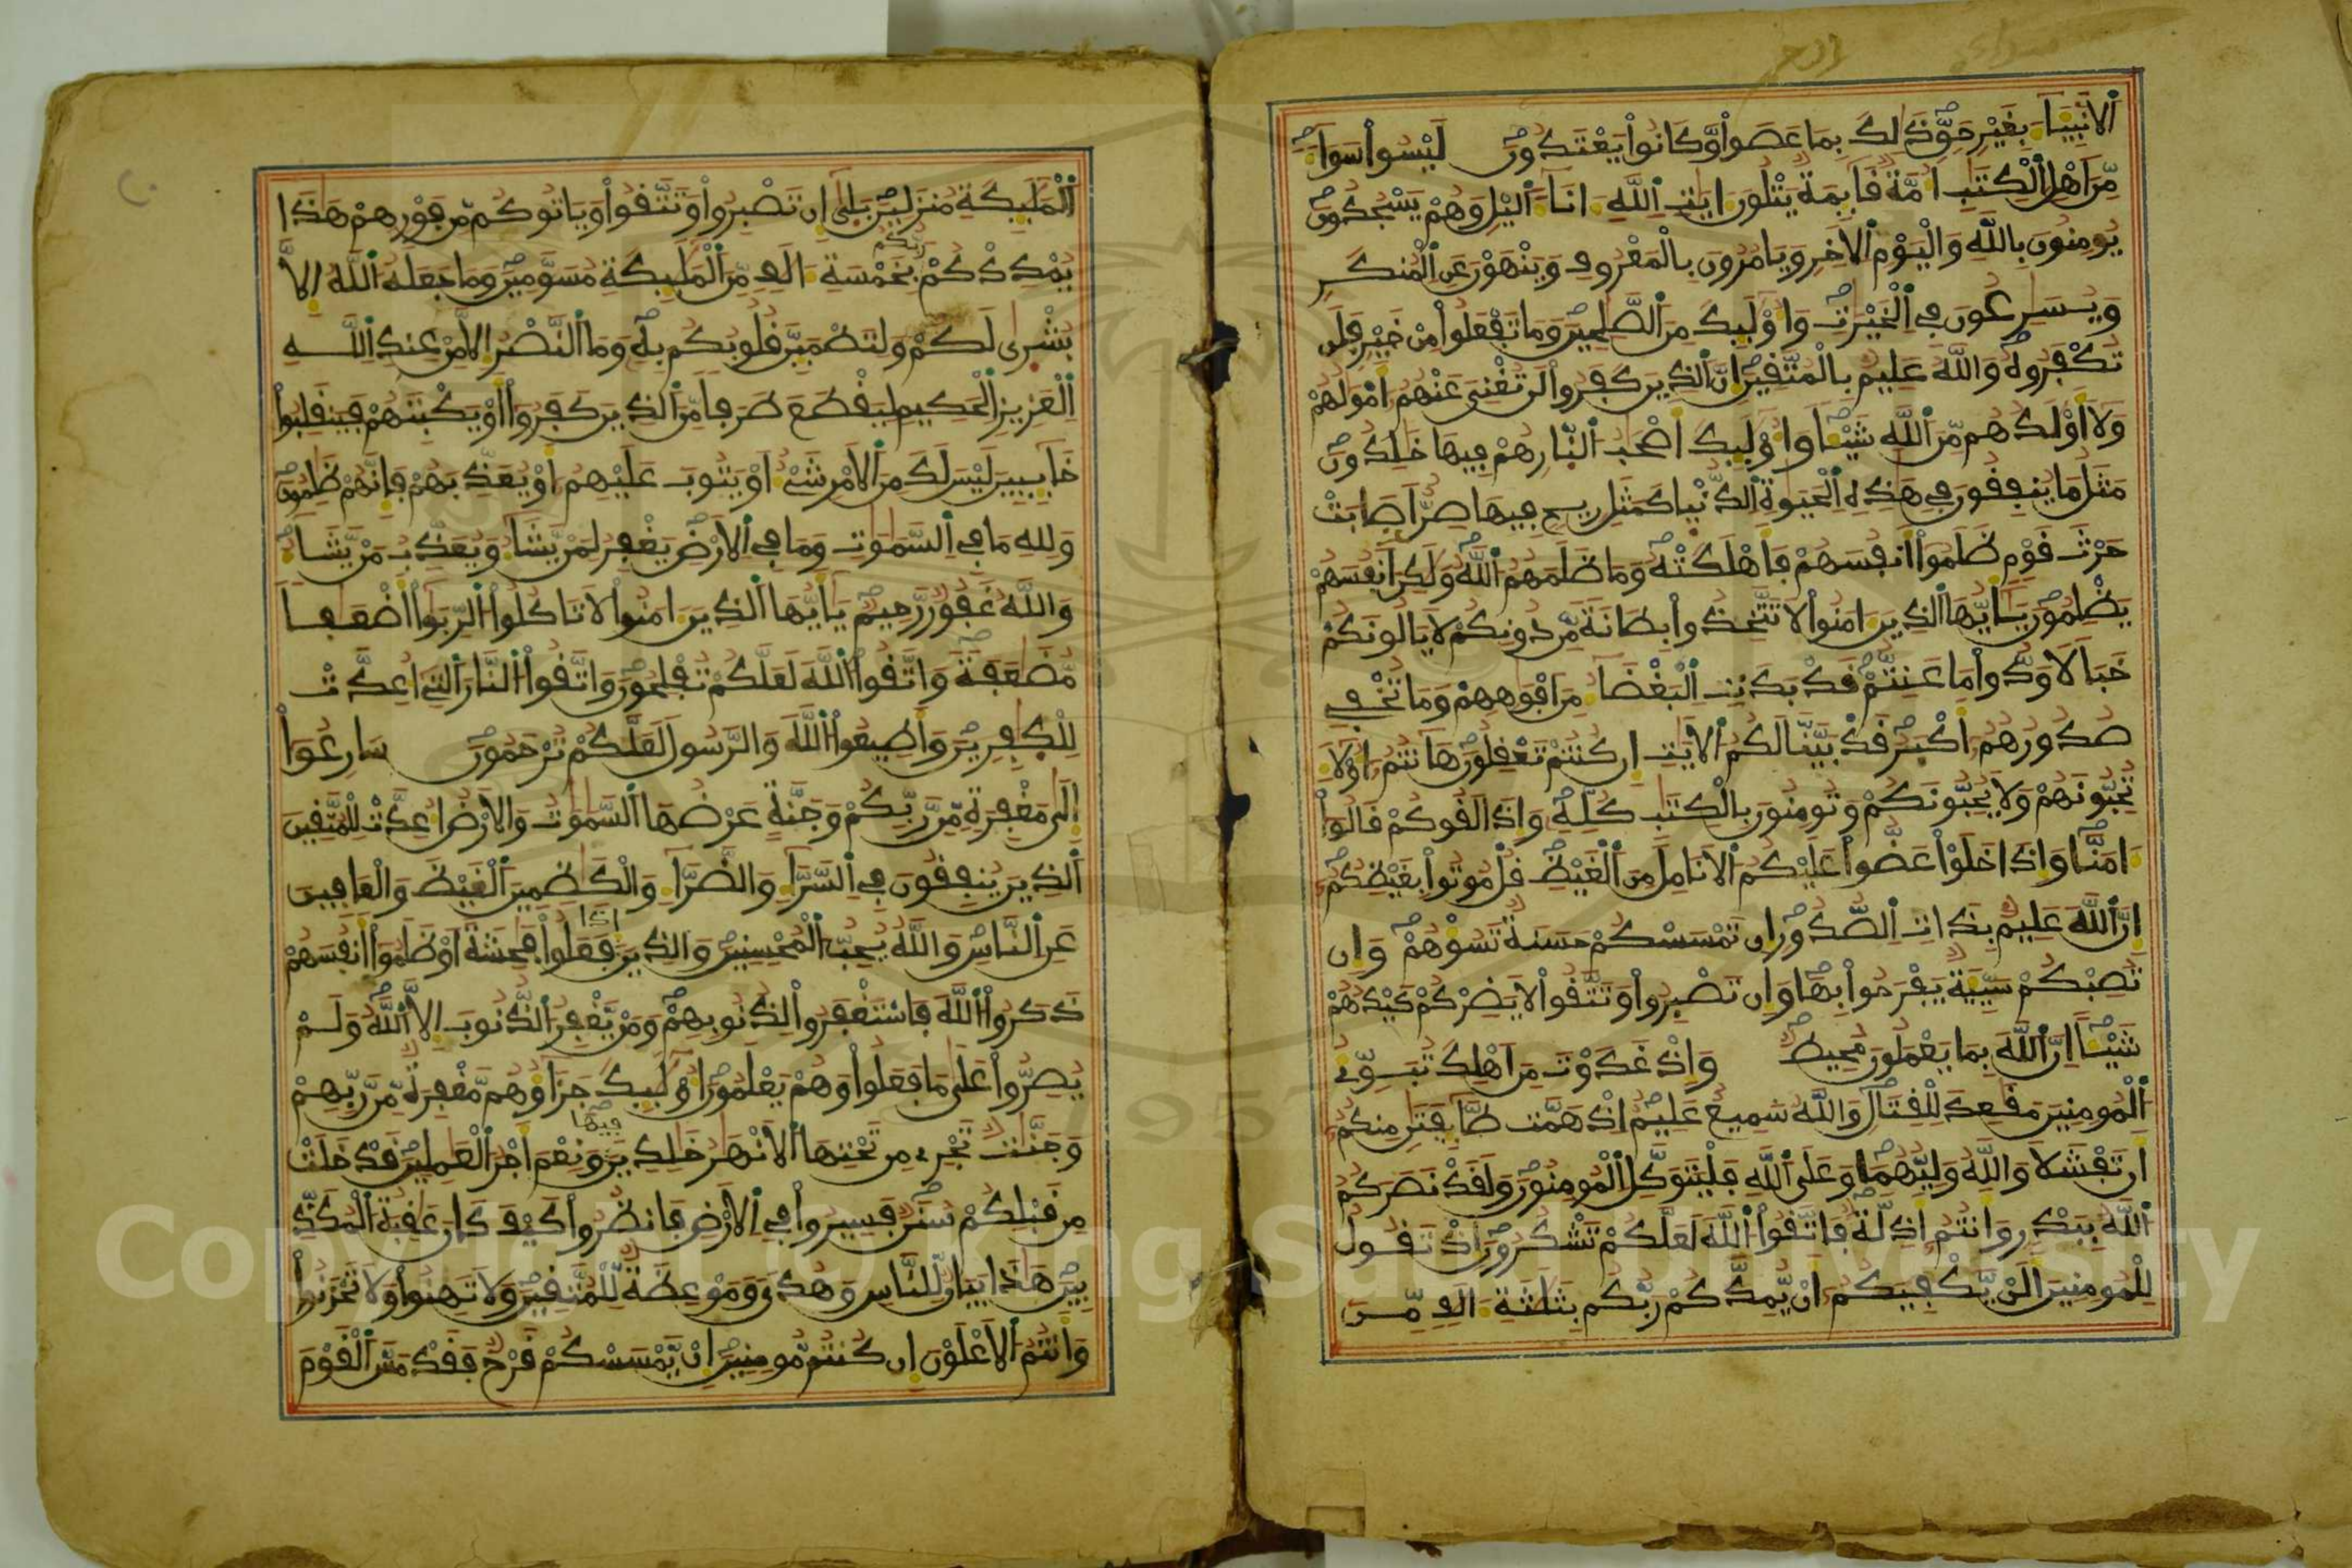 الانبياء بغير حق ذلك بما عصوا وكانوا يعتدون ليسوا سواء
من اهل الكتب امة قايمة يتلون ايت الله اناء اليل وهم يسجدون
يومنون بالله واليوم الاخر ويامرون بالمعروف وينهون عن المنكر
ويسرعون في الخيرت واوليك من الصلحين وما تفعلوا من خير فلن
تكفروه والله عليم بالمتقين ان الذين كفروا لن تغني عنهم امولهم
ولا اولدهم من الله شيئا واوليك اصحب النار هم فيها خلدون
مثل ما ينفقون في هذه الحيوة الدنيا كمثل ريح فيها صر اصابت
حرث قوم ظلموا انفسهم فاهلكته وما ظلمهم الله ولكن انفسهم
يظلمون يايها الذين امنوا لا تتخذوا بطانة من دونكم لا يالونكم
خبالا ودوا ما عنتم قد بدت البغضاء من افوههم وما تخفي
صدورهم اكبر قد بينا لكم الايت ان كنتم تعقلون هانتم اولاء
تحبونهم ولا يحبونكم وتومنون بالكتب كله واذا لقوكم قالوا
امنا واذا خلوا عضوا عليكم الانامل من الغيظ قل موتوا بغيظكم
ان الله عليم بذات الصدور ان تمسسكم حسنة تسوهم وان
تصبكم سيية يفرحوا بها وان تصبروا وتتقوا لا يضركم كيدهم
شيئا ان الله بما يعملون محيط واذ غدوت من اهلك تبوئ
المومنين مقعد للقتال والله سميع عليم اذ همت طايفتن منكم
ان تفشلا والله وليهما وعلى الله فليتوكل المومنون ولقد نصركم
الله ببدر وانتم اذلة فاتقوا الله لعلكم تشكرون اذ تقول
للمومنين الن يكفيكم ان يمدكم ربكم بثلثة الف من
المليكة منزلين بلى ان تصبروا وتتقوا وياتوكم من فورهم هذا
يمددكم ربكم بخمسة الف من المليكة مسومين وما جعله الله الا
بشرى لكم ولتطمين قلوبكم به وما النصر الا من عند الله
العزيز الحكيم ليقطع طرفا من الذين كفروا او يكبتهم فينقلبوا
خايبين ليس لك من الامر شئ او يتوب عليهم او يعذبهم فانهم ظلمون
ولله ما في السموت وما في الارض يغفر لمن يشاء ويعذب من يشاء
والله غفور رحيم يايها الذين امنوا لا تاكلوا الربوا اضعفا
مضعفة واتقوا الله لعلكم تفلحون واتقوا النار التي اعدت
للكفرين واطيعوا الله والرسول لعلكم ترحمون سارعوا
الى مغفرة من ربكم وجنة عرضها السموت والارض اعدت للمتقين
الذين ينفقون في السراء والضراء والكظمين الغيظ والعافين
عن الناس والله يحب المحسنين والذين اذا فعلوا فحشة او ظلموا انفسهم
ذكروا الله فاستغفروا لذنوبهم ومن يغفر الذنوب الا الله ولم
يصروا على ما فعلوا وهم يعلمون اوليك جزاوهم مغفرة من ربهم
وجنت تجري من تحتها الانهر خلدين فيها ونعم اجر العملين قد خلت
من قبلكم سنن فسيروا في الارض فانظروا كيف كان عقبة المكذ
بين هذا بيان للناس وهدى وموعظة للمتقين ولا تهنوا ولا تحزنوا
وانتم الاعلون ان كنتم مومنين ان يمسسكم قرح فقد مس القوم
Copyright © King Saud University
1957